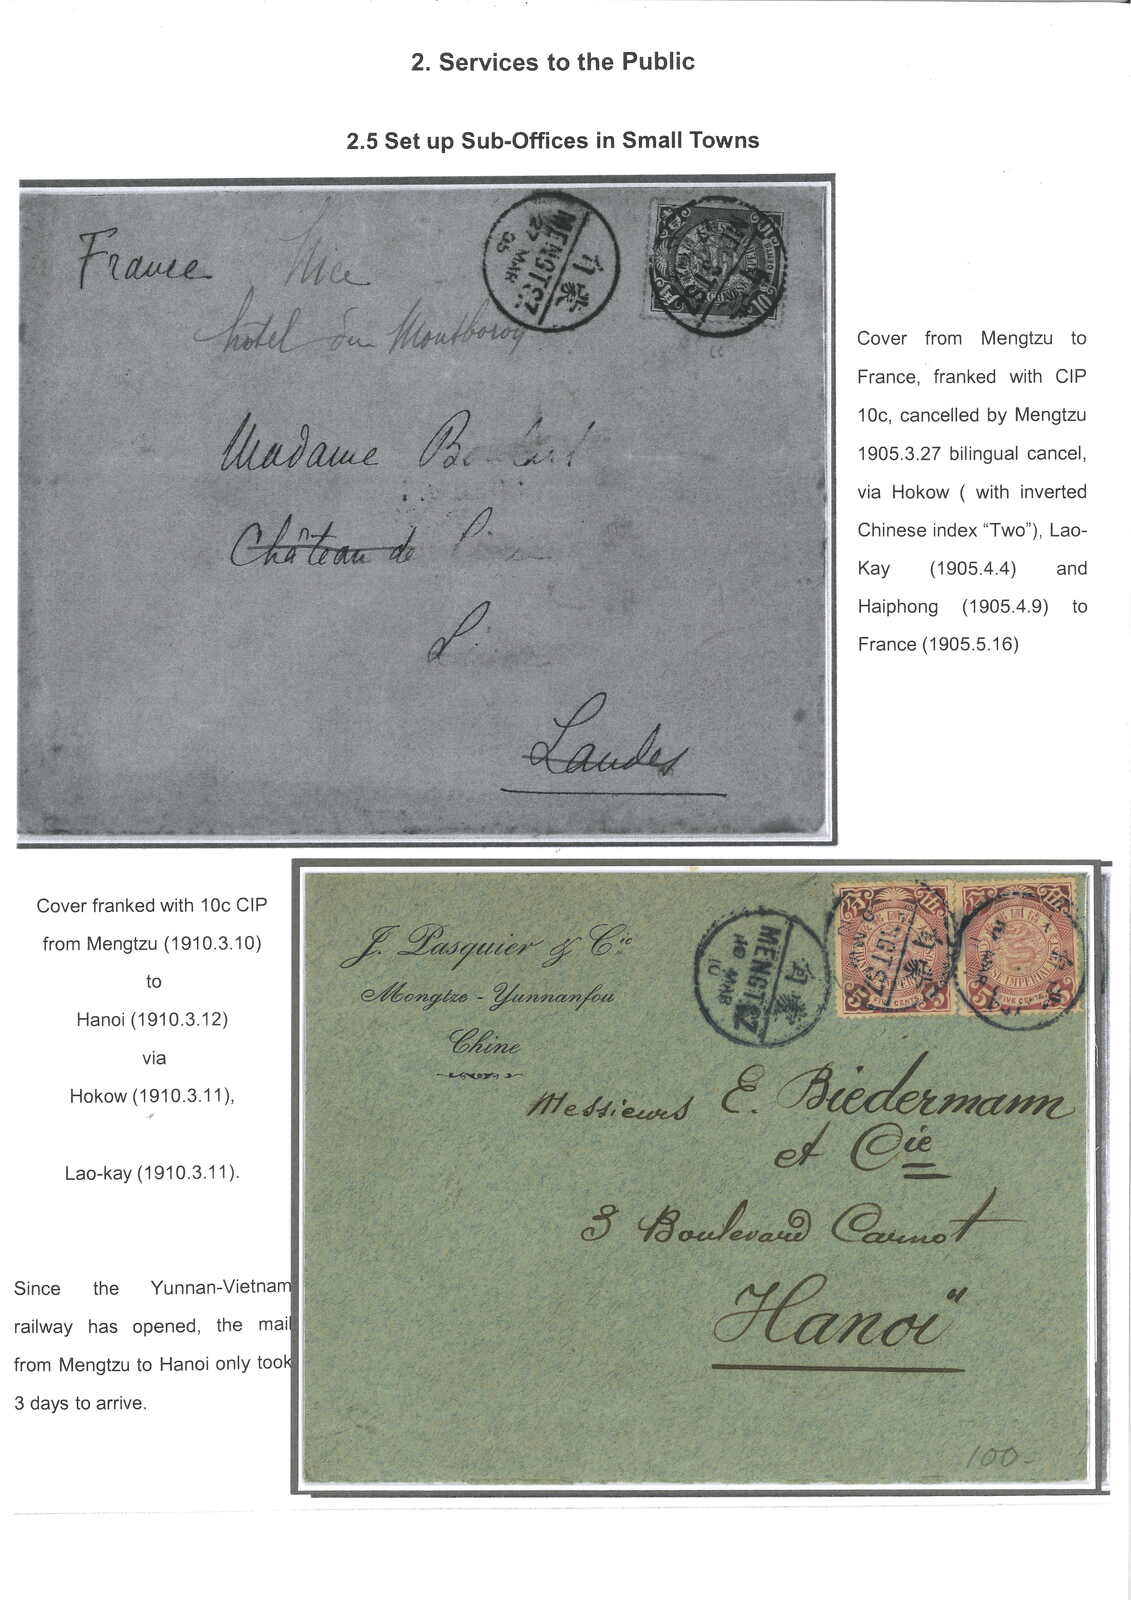 2. Services to the Public
2.5 Set up Sub-Offices in Small Towns
France
Nice
hotel du
Madame
Château de
Landes
MENGTSZ
27 MAR
05
蒙自
Cover from Mengtzu to
France, franked with CIP
10c, cancelled by Mengtzu
1905.3.27 bilingual cancel,
via Hokow ( with inverted
Chinese index “Two”), Lao-
Kay (1905.4.4) and
Haiphong (1905.4.9) to
France (1905.5.16)
Cover franked with 10c CIP
from Mengtzu (1910.3.10)
to
Hanoi (1910.3.12)
via
Hokow (1910.3.11),
Lao-kay (1910.3.11).
Since the Yunnan-Vietnam
railway has opened, the mail
from Mengtzu to Hanoi only took
3 days to arrive.
J. Pasquier & Cie
Mongtze - Yunnanfou
Chine
MENGTSZ
MAR
10
蒙自
FIVE CENTS
FIVE CENTS
Messieurs E. Biedermann
et Cie
3 Boulevard Carnot
Hanoi"
100-